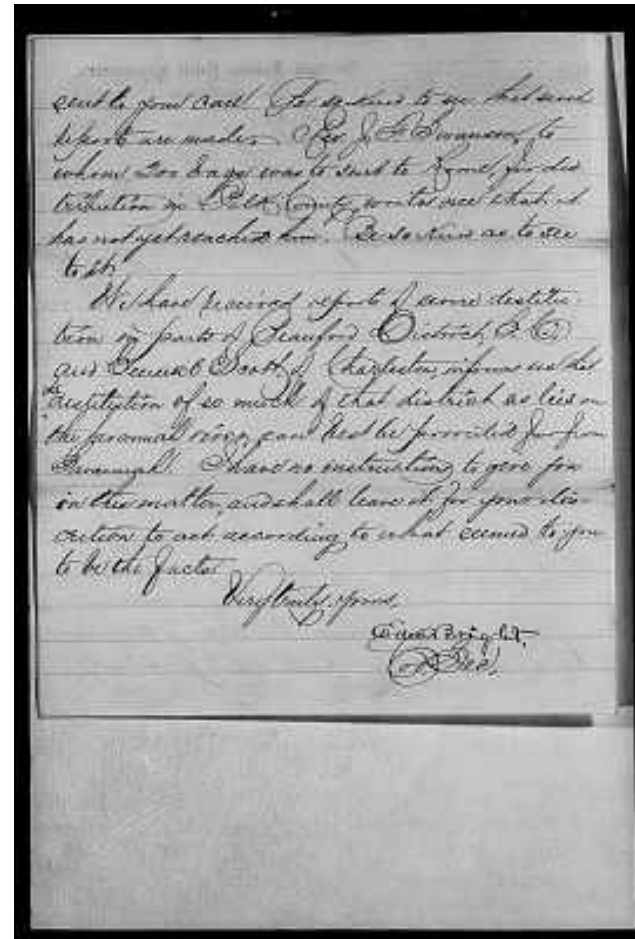 sent to your care. Be so kind to see that such
reports are made. Rev. J. F. Swanson, to
whom 200 bags was to sent to Rome, for dis
tribution in Polk County, writes me that it
has not yet reached him. Be so kind as to see
to it.
We have received reports of some destitu-
tion in parts of Beauford District, S. C.
and General Scott, of Charleston, informs us that
the destitution of so much of that district as lies on
the Savannah river, can best be provided for from
Savannah. I have no instructions to give you
in this matter, and shall leave it for your dis-
cretion to act according to what seemed to you
to be the facts.
Very truly yours,
Edward Bright,
Sec.